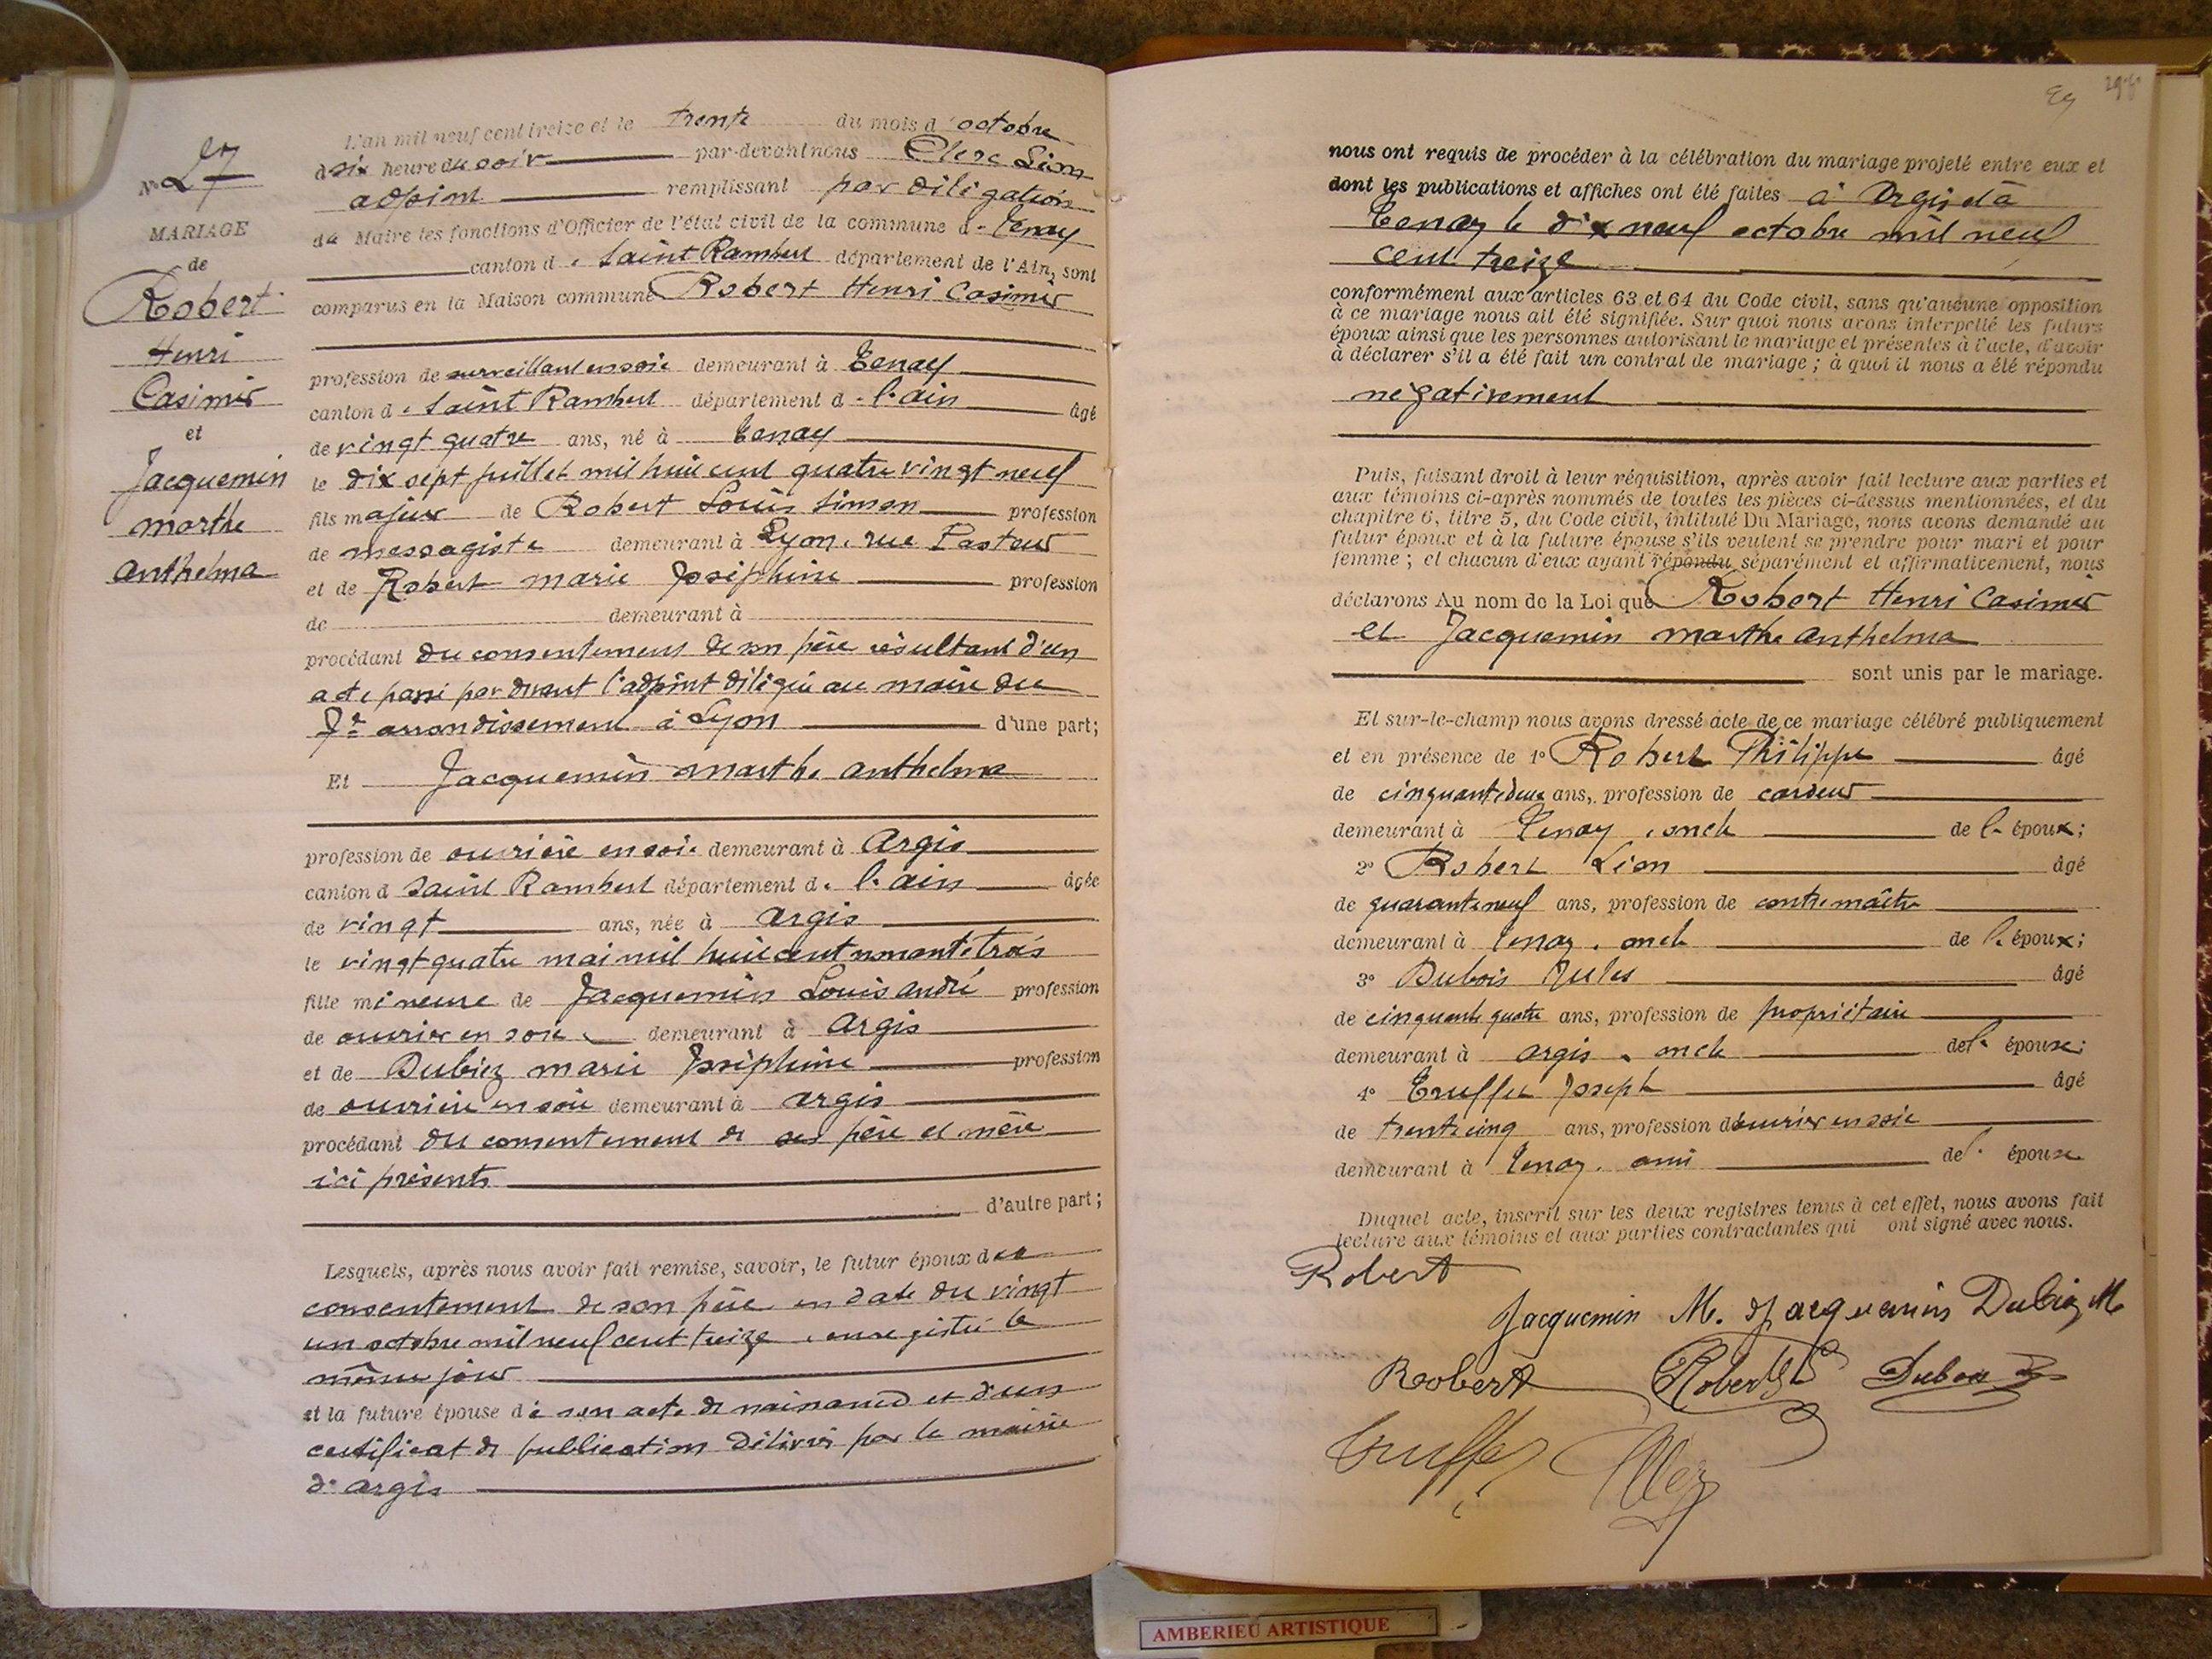 N° 27
MARIAGE
de
Robert
Henri
Casimir
et
Jacquemin
marthe
anthelma
L'an mil neuf cent treize et le trente du mois d'octobre
à six heure du soir par-devant nous Clerc Léon
adjoint remplissant par délégation
du Maire les fonctions d'Officier de l'état civil de la commune de Tenay
canton de Saint Rambert département de l'Ain, sont
comparus en la Maison commune Robert Henri Casimir
profession de surveillant en soie demeurant à Tenay
canton de Saint Rambert département de l'ain âgé
de vingt quatre ans, né à Tenay
le dix sept juillet mil huit cent quatre vingt neuf
fils majeur de Robert Louis Simon profession
de messagiste demeurant à Lyon, rue Pasteur
et de Robert marie Joséphine profession
de demeurant à
procédant du consentement de son père résultant d'un
acte passé par devant l'adjoint délégué au maire du
7e arrondissement à Lyon d'une part;
Et Jacquemin marthe anthelma
profession de ouvrière en soie demeurant à Argis
canton d Saint Rambert département de l'ain âgée
de vingt ans, née à argis
le vingt quatre mai mil huit cent nonante trois
fille mineure de Jacquemin Louis andré profession
de ouvrier en soie demeurant à argis
et de Dubiez marie Joséphine profession
de ouvrière en soie demeurant à argis
procédant du consentement de ses père et mère
ici présents
d'autre part;
Lesquels, après nous avoir fait remise, savoir, le futur époux du
consentement de son père en date du vingt
un octobre mil neuf cent treize, enregistré le
même jour
et la future épouse de son acte de naissance et d'un
certificat de publication délivré par la mairie
d'argis
29
nous ont requis de procéder à la célébration du mariage projeté entre eux et
dont les publications et affiches ont été faites à Argis et à
Tenay le dix neuf octobre mil neuf
cent treize
conformément aux articles 63 et 64 du Code civil, sans qu'aucune opposition
à ce mariage nous ait été signifiée. Sur quoi nous avons interpellé les futurs
époux ainsi que les personnes autorisant le mariage et présentes à l'acte, d'avoir
à déclarer s'il a été fait un contrat de mariage; à quoi il nous a été répondu
négativement
Puis, faisant droit à leur réquisition, après avoir fait lecture aux parties et
aux témoins ci-après nommés de toutes les pièces ci-dessus mentionnées, et du
chapitre 6, titre 5, du Code civil, intitulé Du Mariage, nous avons demandé au
futur époux et à la future épouse s'ils veulent se prendre pour mari et pour
femme; et chacun d'eux ayant répondu séparément et affirmativement, nous
déclarons Au nom de la Loi que Robert Henri Casimir
et Jacquemin marthe anthelma
sont unis par le mariage.
Et sur-le-champ nous avons dressé acte de ce mariage célébré publiquement
et en présence de 1° Robert Philippe âgé
de cinquante deux ans, profession de cardeur
demeurant à Tenay, oncle de l'époux;
2° Robert Léon âgé
de quarante neuf ans, profession de contremaître
demeurant à Tenay, oncle de l'époux;
3° Dubois Jules âgé
de cinquante quatre ans, profession de propriétaire
demeurant à argis, oncle de l'épouse;
4° Truffet Joseph âgé
de trente cinq ans, profession d'ouvrier en soie
demeurant à Tenay, ami de l'épouse
Duquel acte, inscrit sur les deux registres tenus à cet effet, nous avons fait
lecture aux témoins et aux parties contractantes qui ont signé avec nous.
Robert
Jacquemin M. Jacquemin Dubiez M
Robert Robert L Dubois
Truffet
AMBERIEU ARTISTIQUE